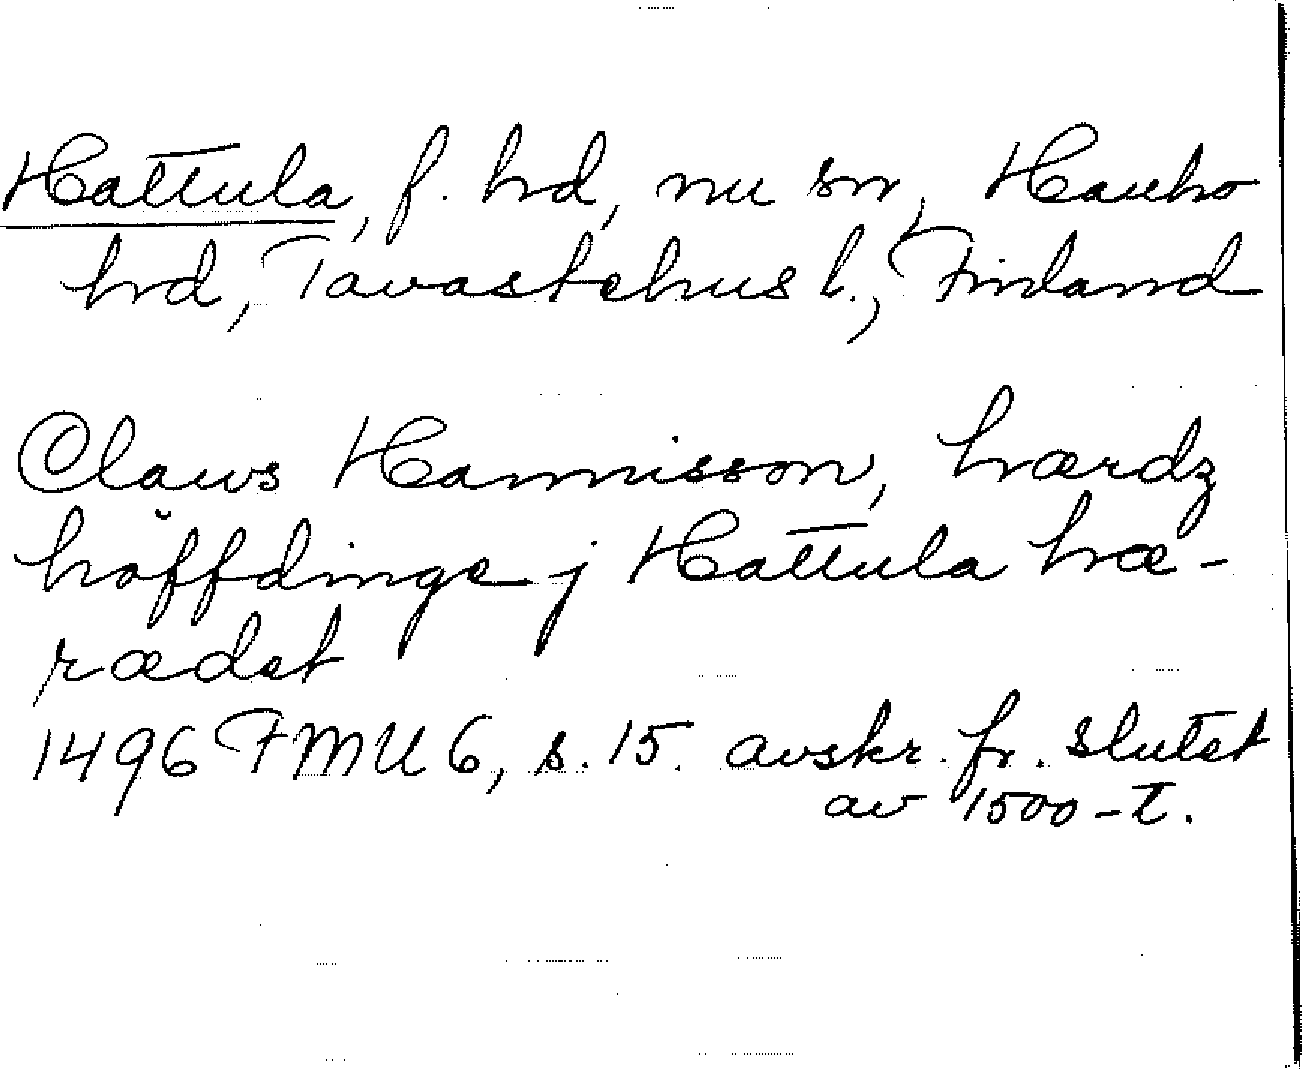 Hattula, f. hd, nu sn, Hauho
hd, Tavastehus l., Finland
Claws Hannisson, hærdz
höffdinge j Hattula hæ-
rædet
1496 FMU 6, s. 15. avskr. fr. slutet
av 1500-t.